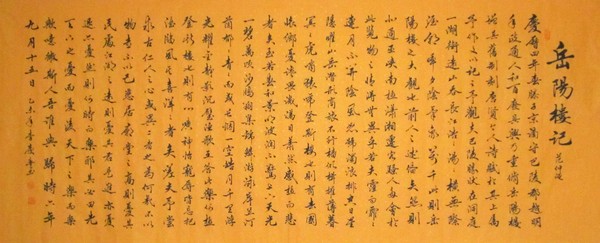 岳陽樓記
范仲淹
慶曆四年春滕子京謫守巴陵郡越明
年政通人和百廢具興乃重修岳陽樓
增其舊制刻唐賢今人詩賦於其上屬
予作文以記之予觀夫巴陵勝狀在洞庭
一湖銜遠山吞長江浩浩湯湯橫無際
涯朝暉夕陰氣象萬千此則岳
陽樓之大觀也前人之述備矣然則
北通巫峽南極瀟湘遷客騷人多會於
此覽物之情得無異乎若夫霪雨霏霏
連月不開陰風怒號濁浪排空日星
隱曜山岳潛形商旅不行檣傾楫摧薄暮
冥冥虎嘯猿啼登斯樓也則有去國
懷鄉憂讒畏譏滿目蕭然感極而悲
者矣至若春和景明波瀾不驚上下天光
一碧萬頃沙鷗翔集錦鱗游泳岸芷汀
蘭郁郁青青而或長煙一空皓月千里浮
光耀金靜影沉璧漁歌互答此樂何極
登斯樓也則有心曠神怡寵辱偕忘把
酒臨風其喜洋洋者矣嗟夫予嘗
求古仁人之心或異二者之為何哉不以
物喜不以己悲居廟堂之高則憂其
民處江湖之遠則憂其君是進亦憂
退亦憂然則何時而樂耶其必曰先
天下之憂而憂後天下之樂而樂
歟噫微斯人吾誰與歸時六年
九月十五日